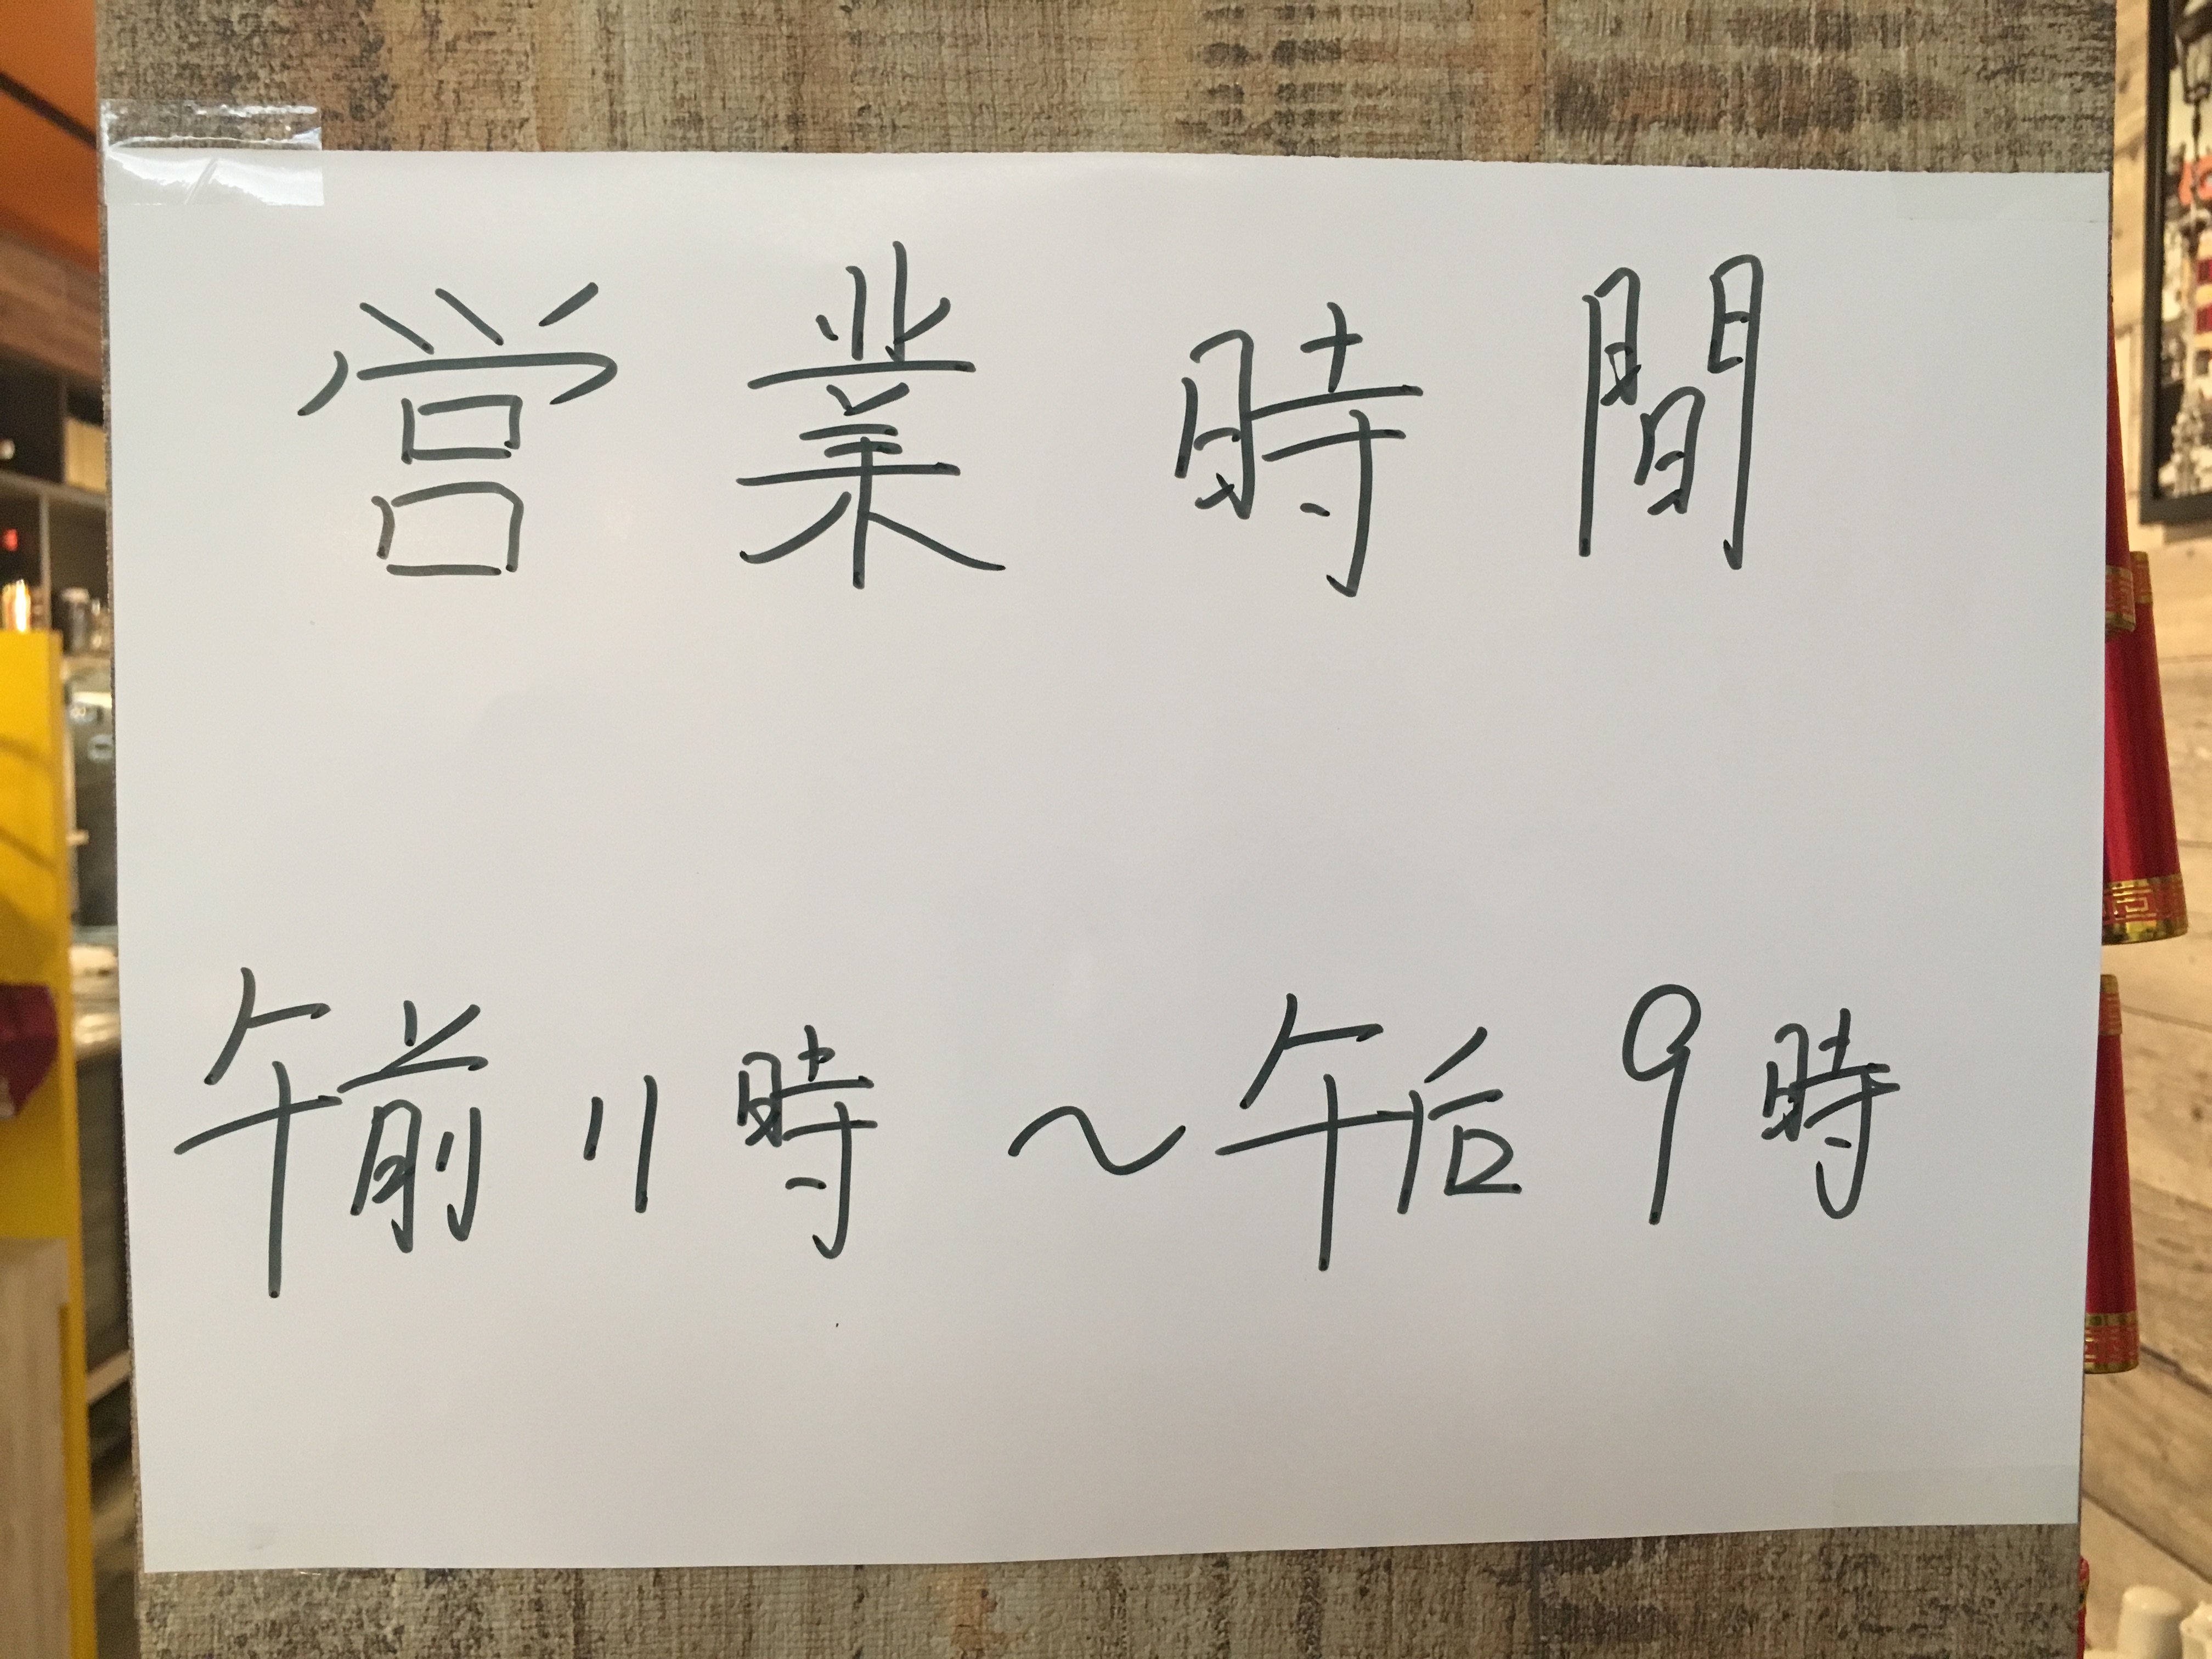 営業時間
午前11時〜午后9時